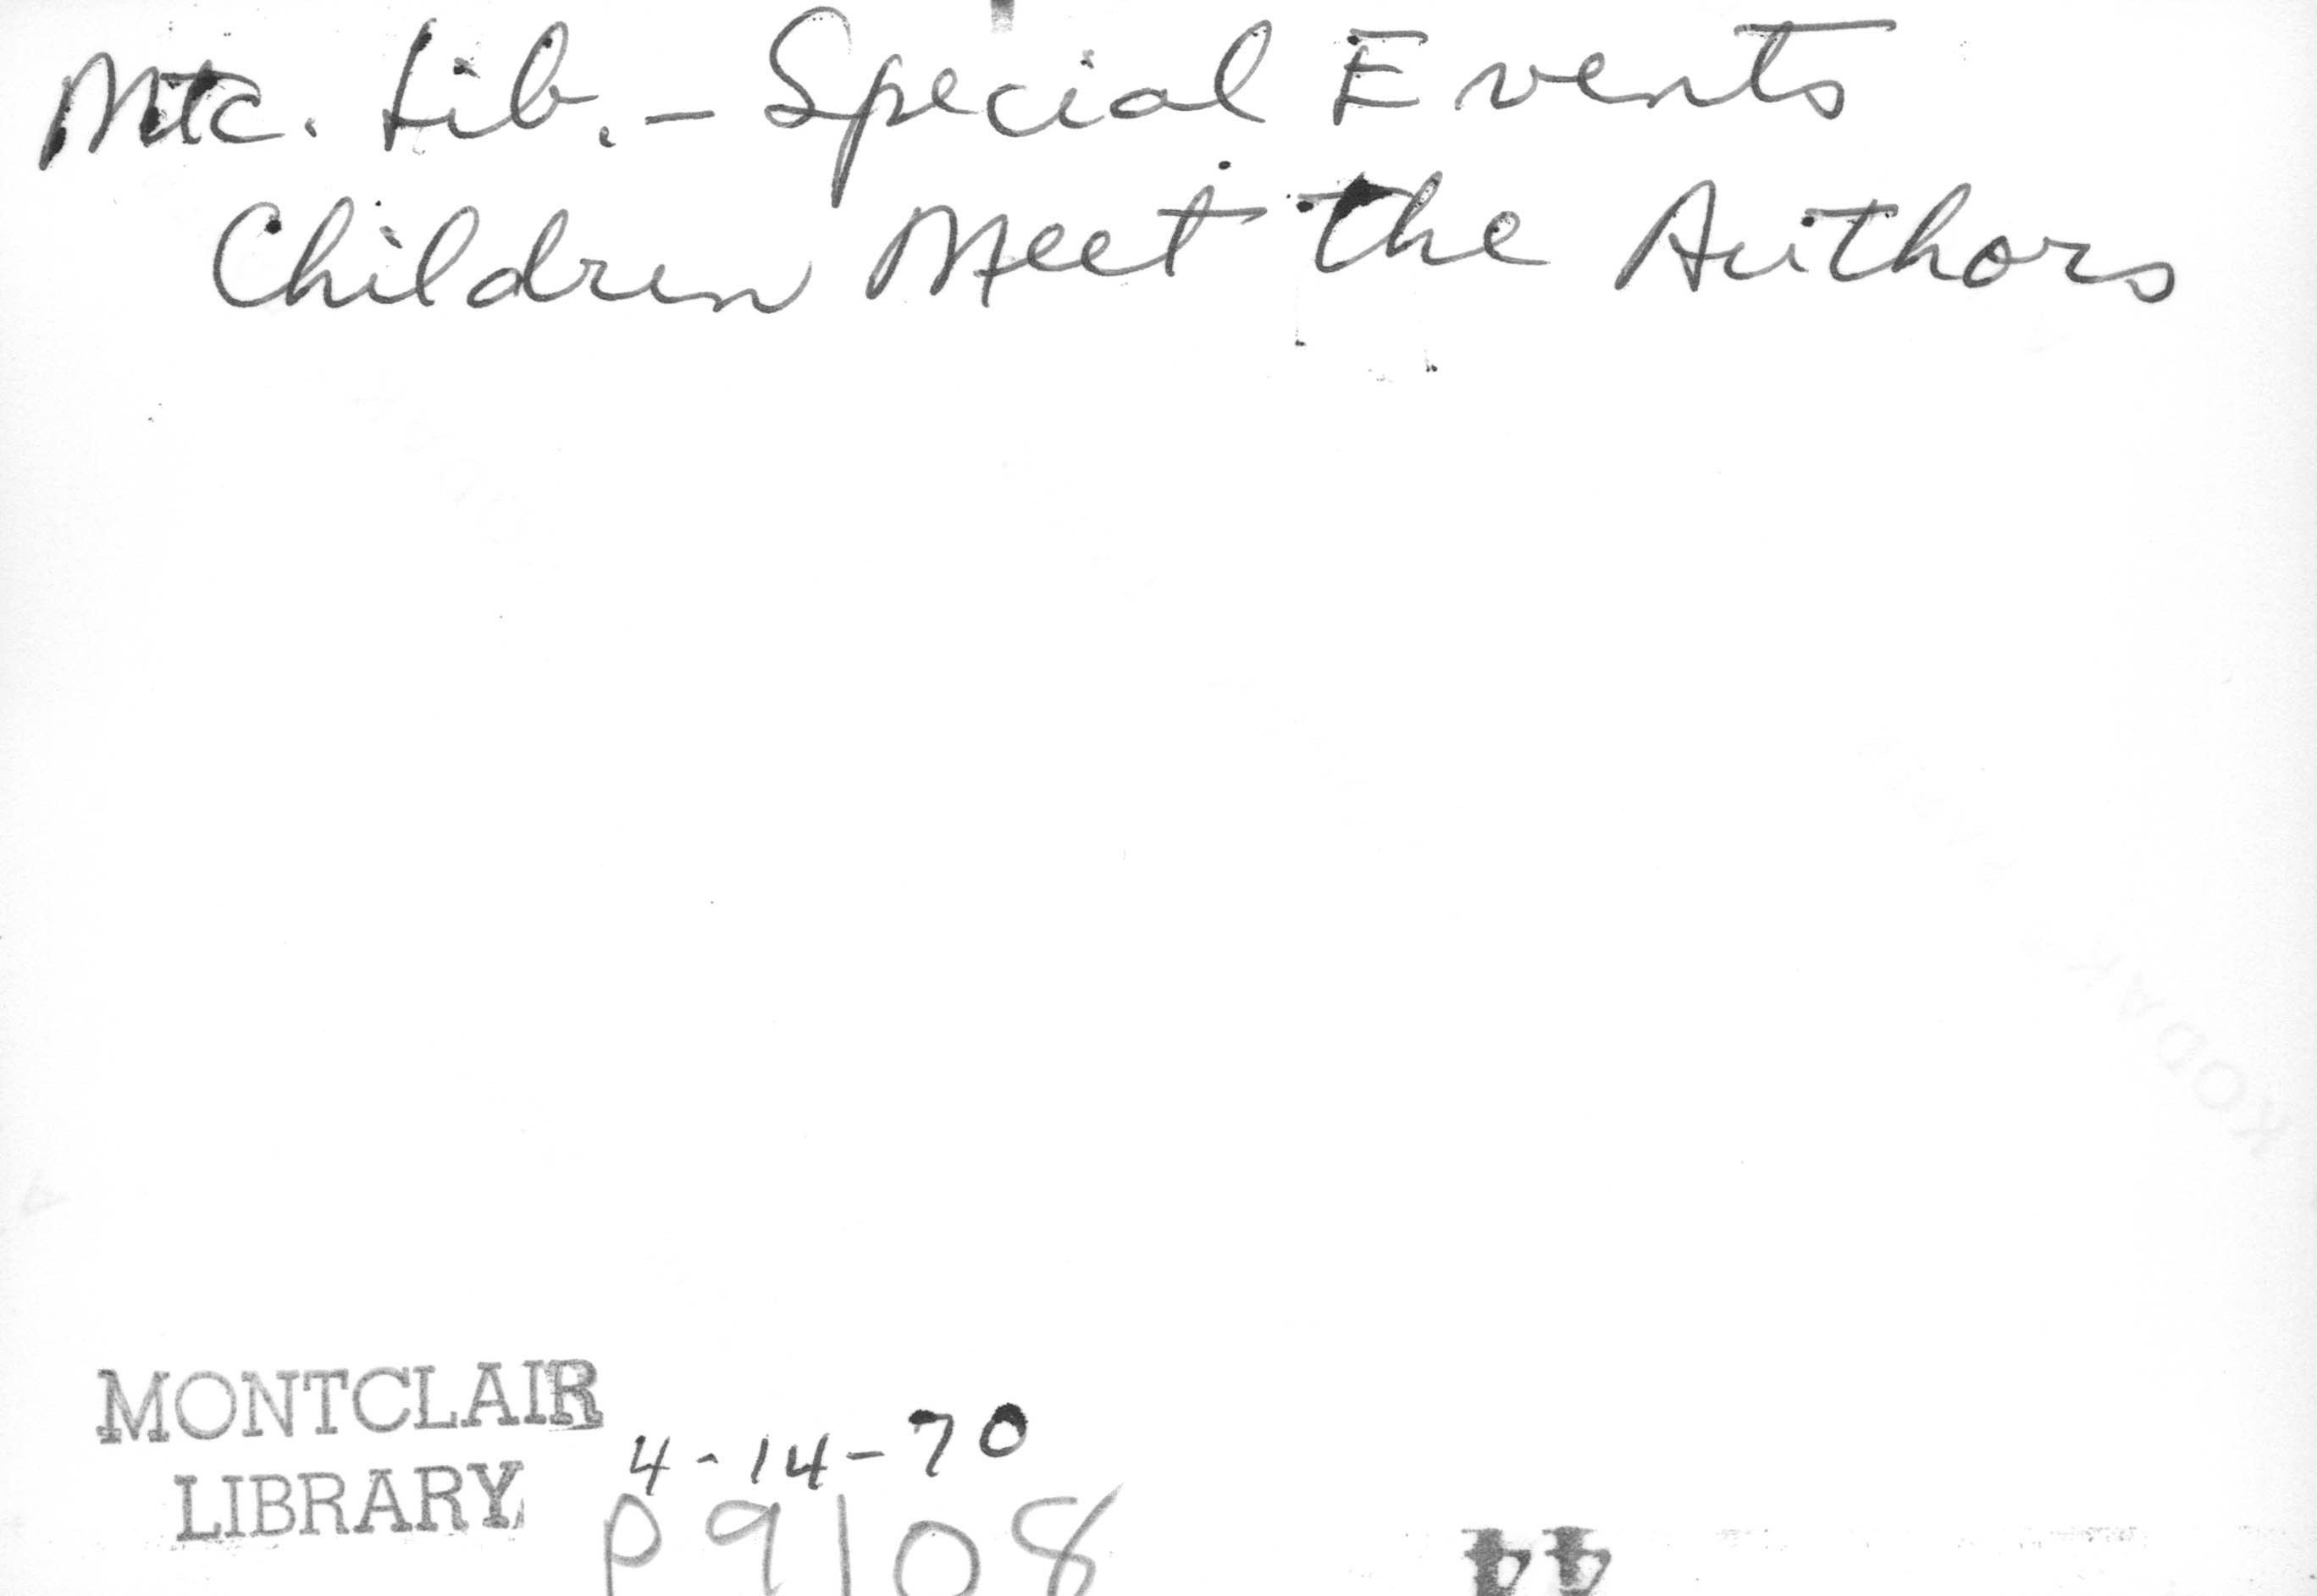 Mtc. Lib. - Special Events
Children Meet the Authors
KODAK
MONTCLAIR
LIBRARY
4-14-70
P9108